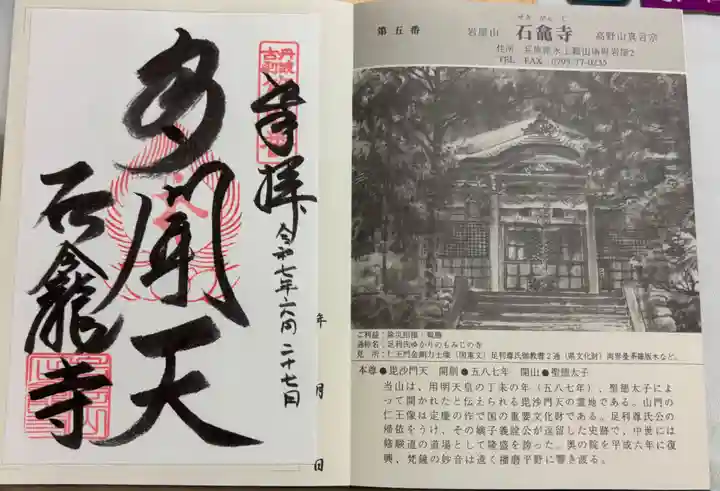 奉拝
令和七年六月二十七日
多聞天
石龕寺
年
月
日
第五番
岩屋山
せきがんじ
石龕寺
高野山真言宗
住所 兵庫県氷上郡山南町岩屋2
TEL FAX 0795-77-0235
ご利益:除災招福・戦勝
通称名:足利氏ゆかりのもみじの寺
見所:仁王門金剛力士像(国重文)足利尊氏御教書2通(県文化財)両界曼荼羅版木など。
本尊●毘沙門天 開創●五八七年 開山●聖徳太子
当山は、用明天皇の丁未の年(五八七年)、聖徳太子によ
って開かれたと伝えられる毘沙門天の霊地である。山門の
仁王像は定慶の作で国の重要文化財である。足利尊氏公の
帰依をうけ、その嫡子義詮公が逗留した史跡で、中世には
修験道の道場として隆盛を誇った。奥の院を平成六年に復
興、梵鐘の妙音は遠く播磨平野に響き渡る。